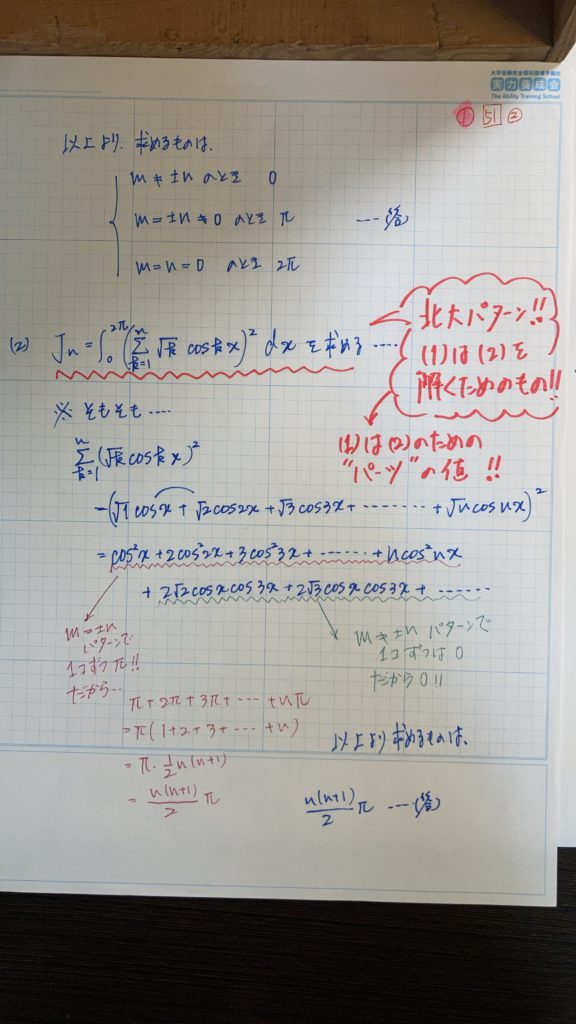 大学受験完全個別指導予備校
実力養成会
The Ability Training School
① 51 ②
以上より、求めるものは、
m≠±n のとき 0
m=±n≠0 のとき π ……(答)
m=n=0 のとき 2π
(2) Jn=∫₀^{2π}(Σ_{k=1}^{n} √k cos kx)² dx を求める ……
北大パターン!!
(1)は(2)を
解くためのもの!!
※ そもそも……
(1)は(2)のための
"パーツ"の値 !!
Σ_{k=1}^{n}(√k cos kx)²
=(√1 cos x + √2 cos2x + √3 cos3x + …… + √n cos nx)²
=cos²x + 2cos²2x + 3cos²3x + …… + n cos²nx
+ 2√2 cosx cos3x + 2√3 cosx cos3x + ……
m=±n
パターンで
1コずつ π!!
だから…
m≠±n パターンで
1コずつは 0
だから 0!!
π+2π+3π+…+nπ
=π(1+2+3+…+n)
=π・½n(n+1)
=n(n+1)/2 π
以上より求めるものは、
n(n+1)/2 π ……(答)